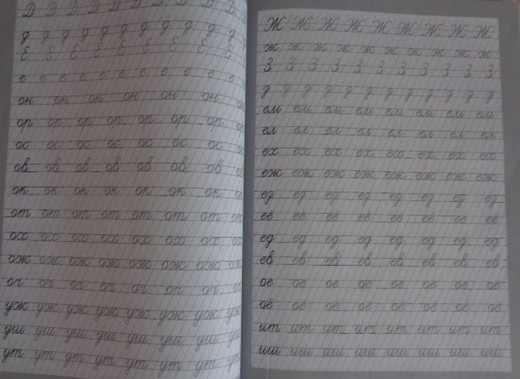 Д Д Д Д Д Д Д Д
д д д д д д д д д д
Е Е Е Е Е Е Е Е Е
е е е е е е е е е е е
он он он он он он он
ор ор ор ор ор ор ор
ос ос ос ос ос ос ос
ов ов ов ов ов ов ов
ок ок ок ок ок ок ок
от от от от от от от
ох ох ох ох ох ох ох
ож ож ож ож ож ож ож
ог ог ог ог ог ог ог
уж уж уж уж уж уж уж
уш уш уш уш уш уш уш
ут ут ут ут ут ут ут
Ж Ж Ж Ж Ж Ж Ж Ж Ж
ж ж ж ж ж ж ж ж ж ж ж
З З З З З З З З З З
ем ем ем ем ем ем ем ем
ел ел ел ел ел ел ел ел
ех ех ех ех ех ех ех ех
еж еж еж еж еж еж еж еж
ед ед ед ед ед ед ед ед
её её её её её её её её
ед ед ед ед ед ед ед ед
ев ев ев ев ев ев ев ев
ое ое ое ое ое ое ое ое
ое ое ое ое ое ое ое ое
ит ит ит ит ит ит ит ит
иш иш иш иш иш иш иш иш